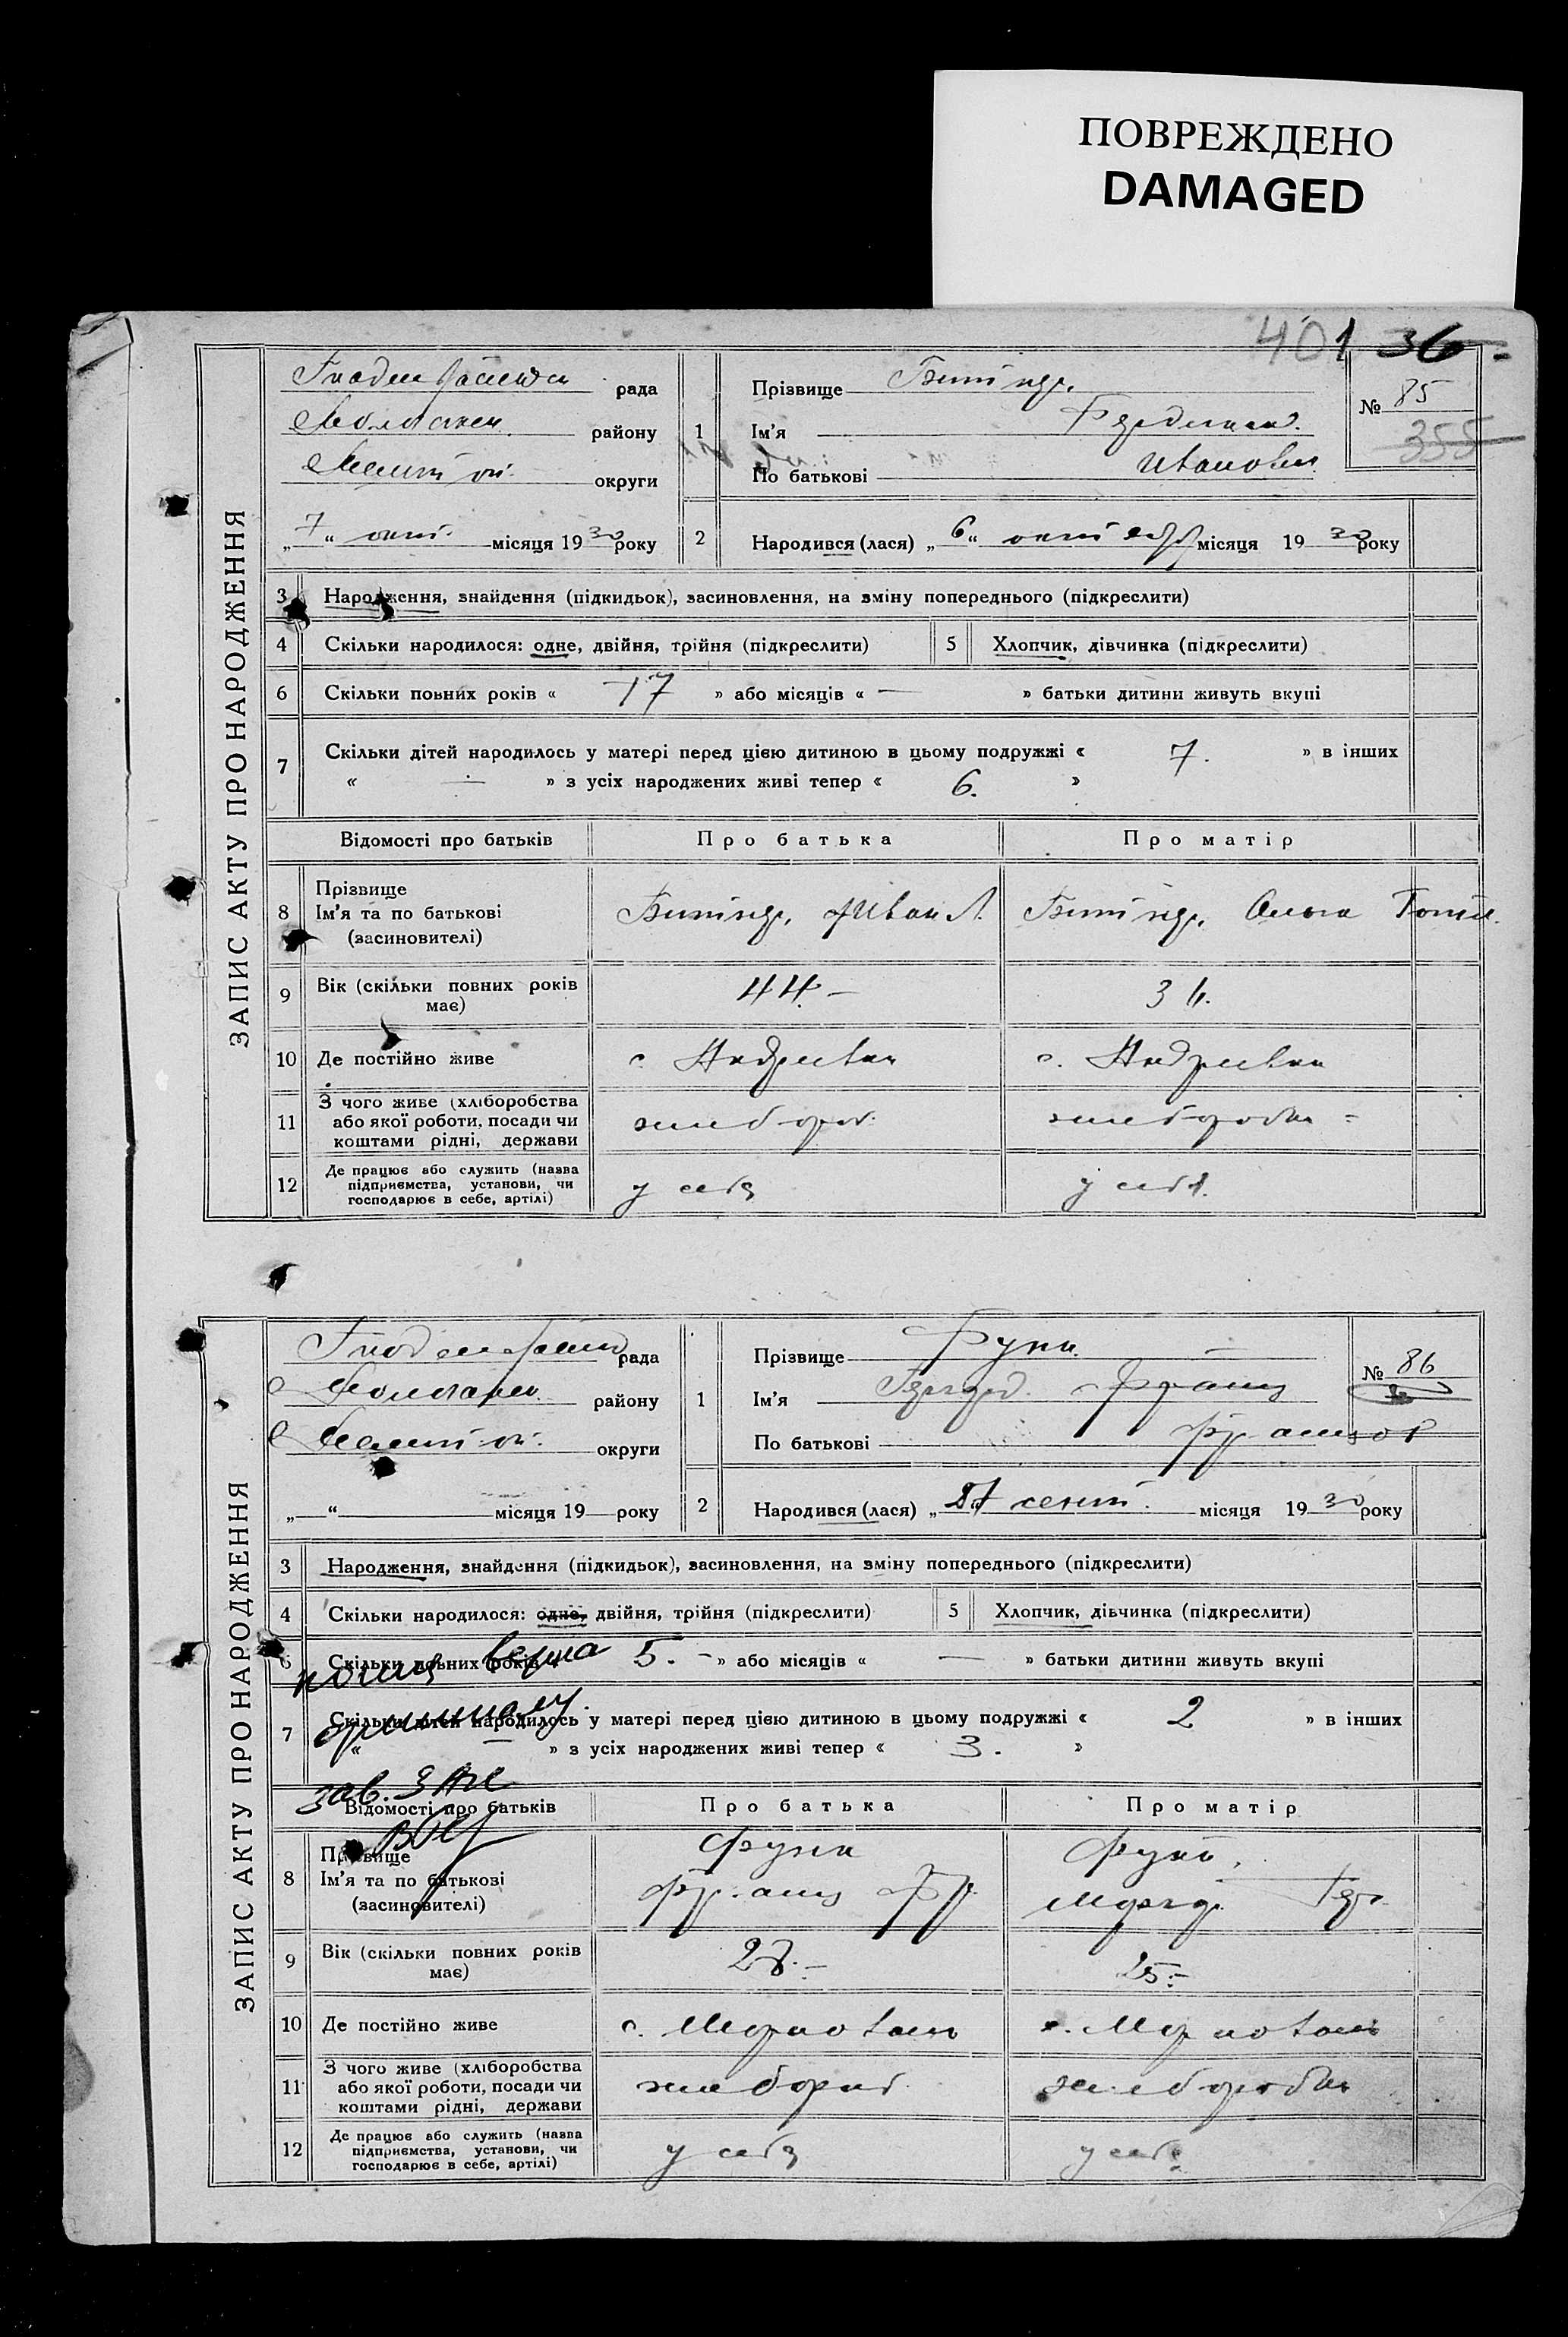 ПОВРЕЖДЕНО
DAMAGED
401 36
ЗАПИС АКТУ ПРО НАРОДЖЕННЯ
рада
району
округи
„7“ окт. місяця 1930 року
1 Прізвище
Ім’я Фердинанд.
По батькові Иванович
№ 85
355
2 Народився (лася) „6“ октября місяця 1930 року
3 Народження, знайдення (підкидьок), засиновлення, на зміну попереднього (підкреслити)
4 Скільки народилося: одне, двійня, трійня (підкреслити) 5 Хлопчик, дівчинка (підкреслити)
6 Скільки повних років « 17 » або місяців « — » батьки дитини живуть вкупі
7 Скільки дітей народилось у матері перед цією дитиною в цьому подружжі « 7. » в інших
« — » з усіх народжених живі тепер « 6. »
Відомості про батьків Про батька Про матір
8 Прізвище
Ім’я та по батькові
(засиновителі)
Иван Л. Ольга
9 Вік (скільки повних років
має)
44.— 36.
10 Де постійно живе с. Андреевка с. Андреевка
11 З чого живе (хліборобства
або якої роботи, посади чи
коштами рідні, держави
хлебороб. хлеборобка
12 Де працює або служить (назва
підприємства, установи, чи
господарює в себе, артілі)
у себя у себя.
ЗАПИС АКТУ ПРО НАРОДЖЕННЯ
рада
району
округи
„—“ місяця 19— року
1 Прізвище Функ
Ім’я Франц
По батькові Францов
№ 86
2 Народився (лася) „27“ сент. місяця 1930 року
3 Народження, знайдення (підкидьок), засиновлення, на зміну попереднього (підкреслити)
4 Скільки народилося: одне, двійня, трійня (підкреслити) 5 Хлопчик, дівчинка (підкреслити)
6 Скільки повних років « 5. — » або місяців « — » батьки дитини живуть вкупі
копия верна
7 Скільки дітей народилось у матері перед цією дитиною в цьому подружжі « 2 » в інших
оригиналу.
« — » з усіх народжених живі тепер « 3. »
зав. ЗАГС
Відомості про батьків Про батька Про матір
8 Прізвище
Ім’я та по батькові
(засиновителі)
Функ Функ,
Франц Фр.
9 Вік (скільки повних років
має)
28.— 25.—
10 Де постійно живе
11 З чого живе (хліборобства
або якої роботи, посади чи
коштами рідні, держави
хлебороб. хлеборобка
12 Де працює або служить (назва
підприємства, установи, чи
господарює в себе, артілі)
у себя у себя